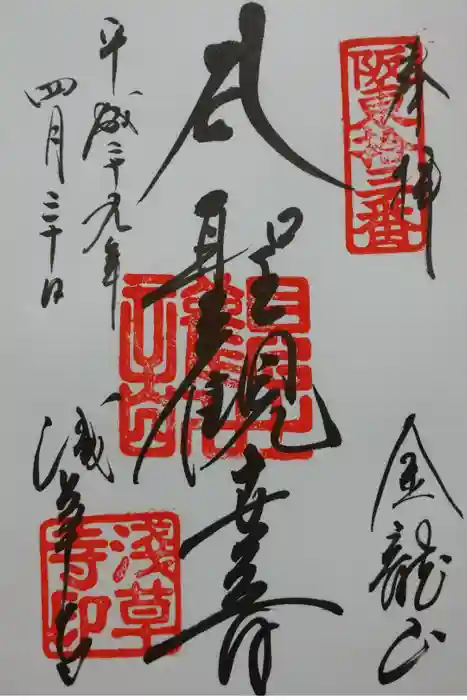 奉拝
阪東拾三番
金龍山
聖観音
平成二十九年
四月三十日
浅草寺
淺草寺印